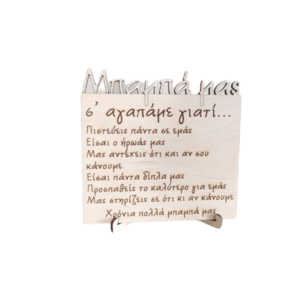 Μπαμπά μας
σ' αγαπάμε γιατί...
Πιστεύεις πάντα σε εμάς
Είσαι ο ήρωάς μας
Μας αντέχεις ότι και αν σου
κάνουμε
Είσαι πάντα δίπλα μας
Προσπαθείς το καλύτερο για εμάς
Μας στηρίζεις σε ότι κι αν κάνουμε
Χρόνια πολλά μπαμπά μας